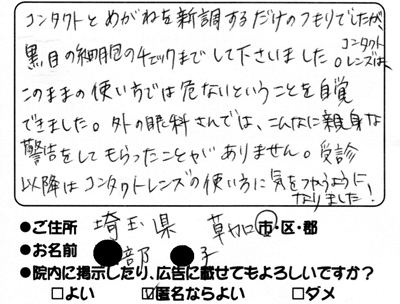 コンタクトとめがねを新調するだけのつもりでしたが、
黒目の細胞のチェックまでして下さいました。コンタクトレンズは、
このままの使い方では危ないということを自覚
できました。外の眼科さんでは、こんなに親身な
警告をしてもらったことがありません。受診
以降はコンタクトレンズの使い方に気をつかうように
なりました！
●ご住所 埼玉県 草加 市・区・郡
●お名前 部 子
●院内に掲示したり、広告に載せてもよろしいですか？
□よい ☑匿名ならよい □ダメ